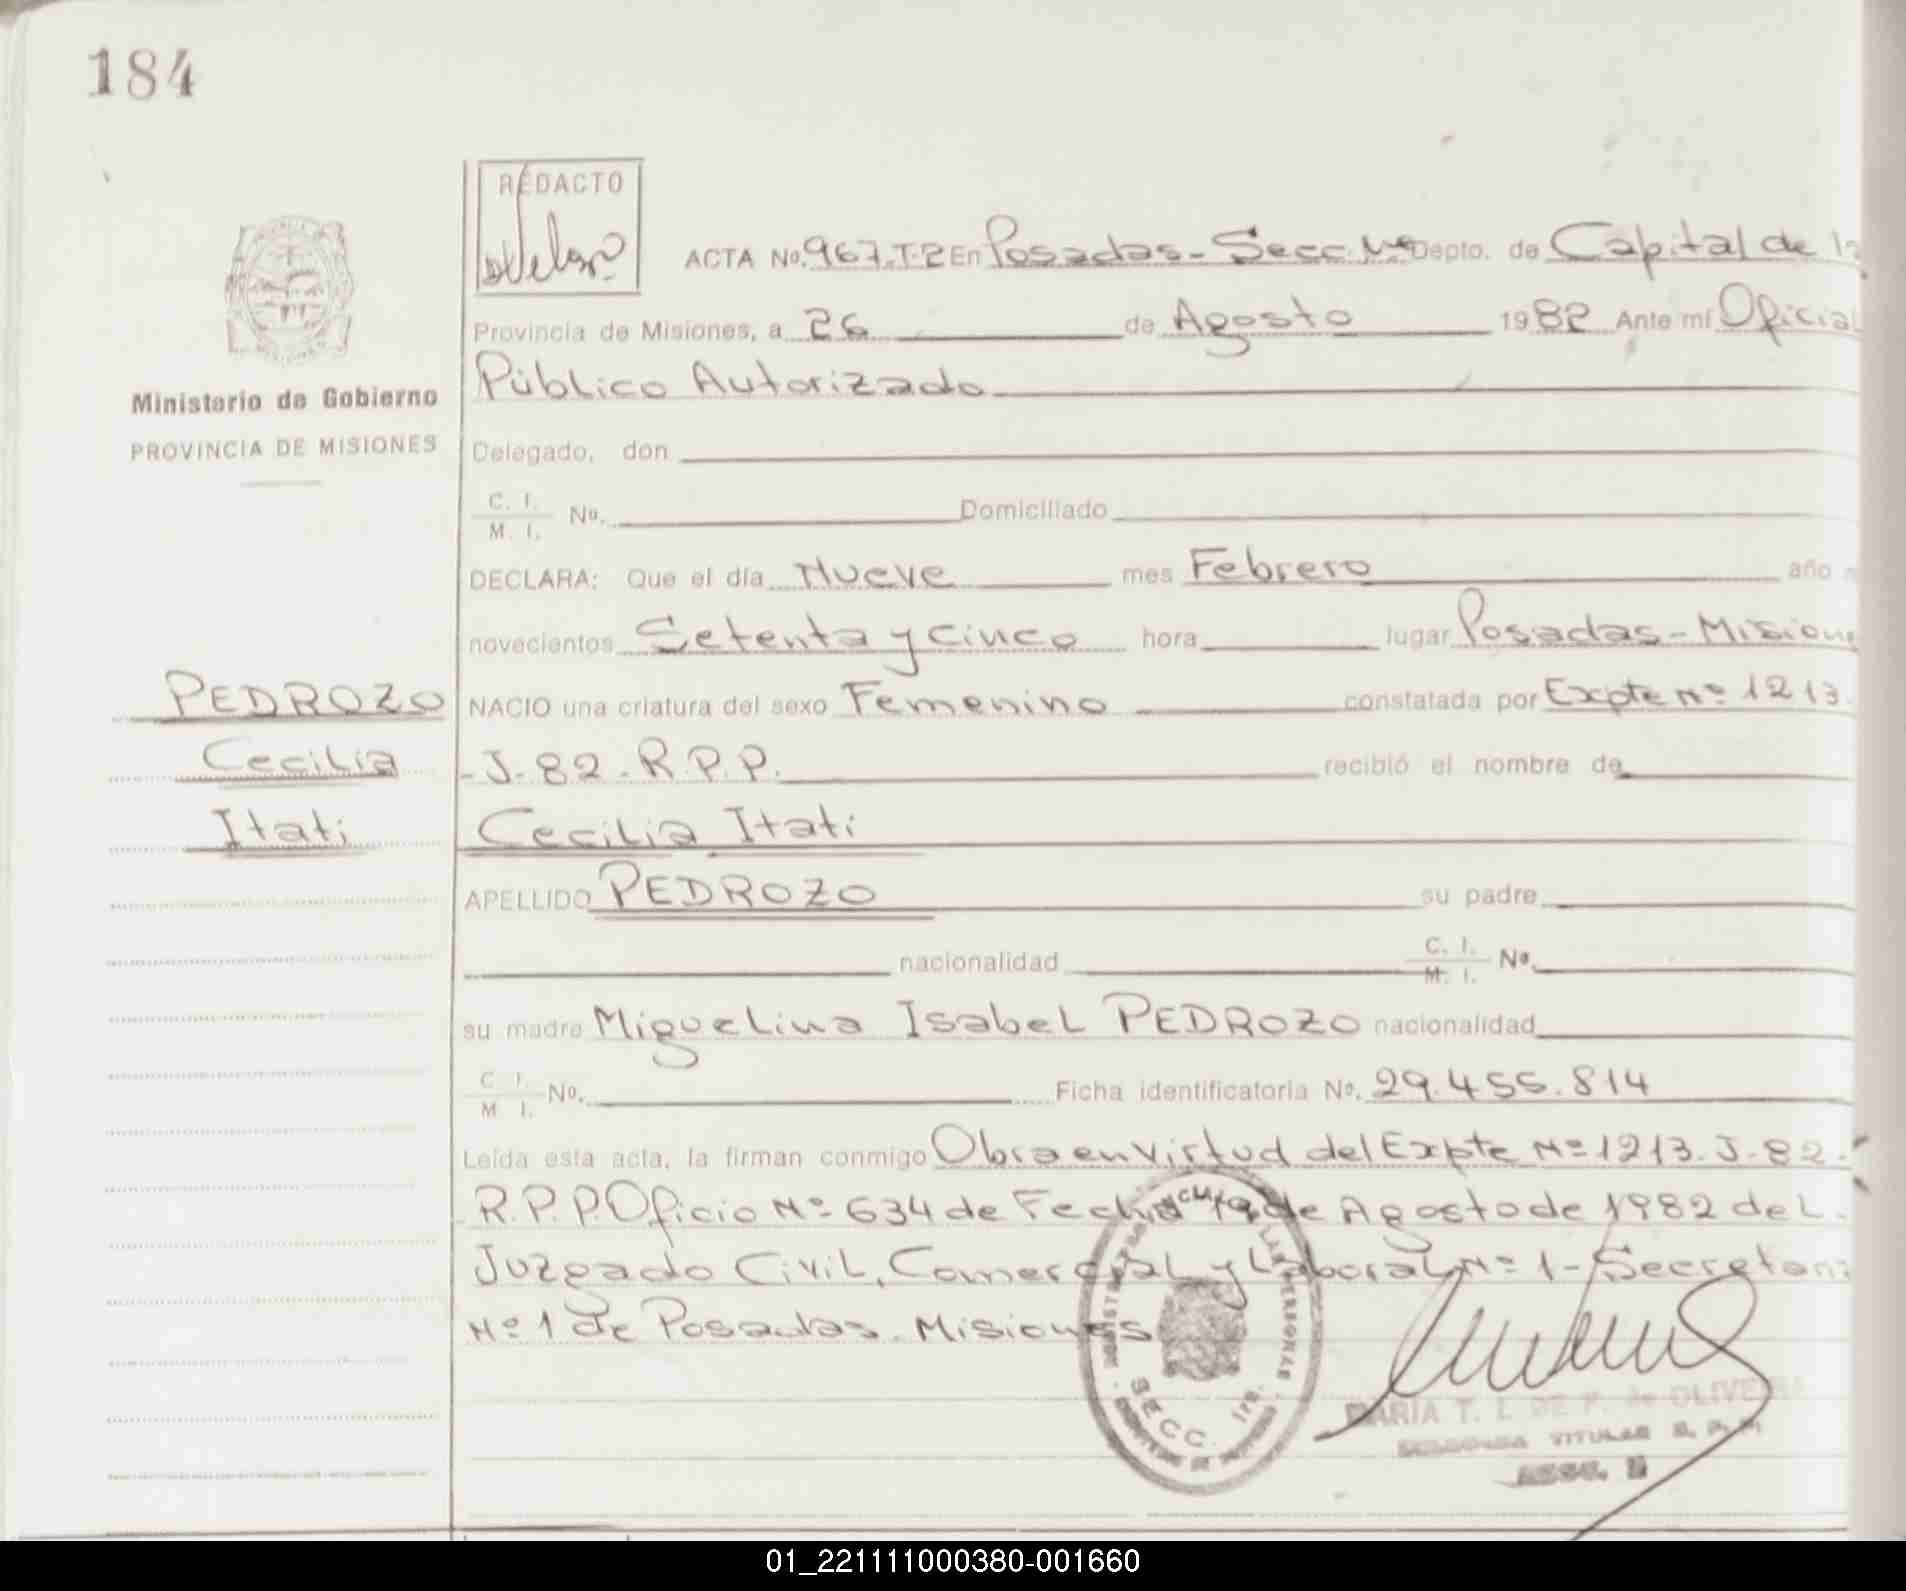 184
REDACTO
ACTA No. 967.T.2 En Posadas - Secc. Nº Depto. de Capital de la
Provincia de Misiones, a 26 de Agosto 1982 Ante mí Oficial
Público Autorizado
Ministerio de Gobierno
PROVINCIA DE MISIONES
Delegado, don
C. I. No. Domiciliado
M. I.
DECLARA: Que el día Nueve mes Febrero año
novecientos Setenta y cinco hora lugar Posadas - Misiones
PEDROZO
Cecilia
Itati
NACIO una criatura del sexo Femenino constatada por Expte Nº 1213.
- J-82-R.P.P. recibió el nombre de
Cecilia Itati
APELLIDO PEDROZO su padre
nacionalidad C. I. No.
M. I.
su madre Miguelina Isabel PEDROZO nacionalidad
C. I. No. Ficha identificatoria No. 29.455.814
M. I.
Leída esta acta, la firman conmigo Obra en virtud del Expte Nº 1213. J-82.
R.P.P. Oficio Nº 634 de Fecha 19 de Agosto de 1982 del
Juzgado Civil, Comercial y Laboral Nº 1 - Secretaria
Nº 1 de Posadas. Misiones
SECC. 1ra.
MARIA T. I. DE P. de OLIVEIRA
TITULAR
01_221111000380-001660